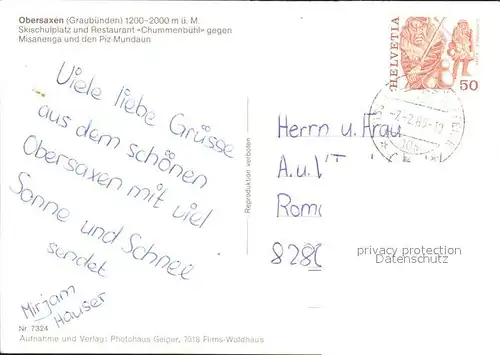 Obersaxen (Graubünden) 1200-2000 m ü. M.
Skischulplatz und Restaurant «Chummenbühl» gegen
Misanenga und den Piz Mundaun
HELVETIA
50
Viele liebe Grüsse
aus dem schönen
Obersaxen mit viel
Sonne und Schnee
sendet
Mirjam
Hauser
Reproduktion verboten
Herrn u. Frau
A.u.
828
privacy protection
Datenschutz
Nr. 7324
Aufnahme und Verlag: Photohaus Geiger, 7018 Flims-Waldhaus